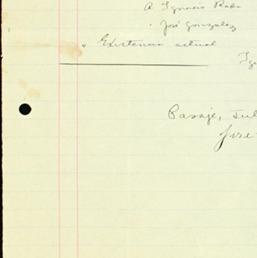 A Ignacio Rada
" José Gonzalez
" Existencia actual
Ig
Pasaje, Jul
José